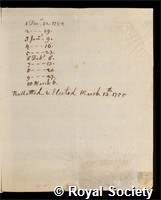 1 Dec. 12. 1754
2 --- 19.
3 Jan. 9.
4 --- 16.
5 --- 23.
6 Feb. 6.
7 --- 13.
8 --- 20.
9 --- 27.
10 March 6.
Balloted & Elected March 13th. 1755.
© Royal Society